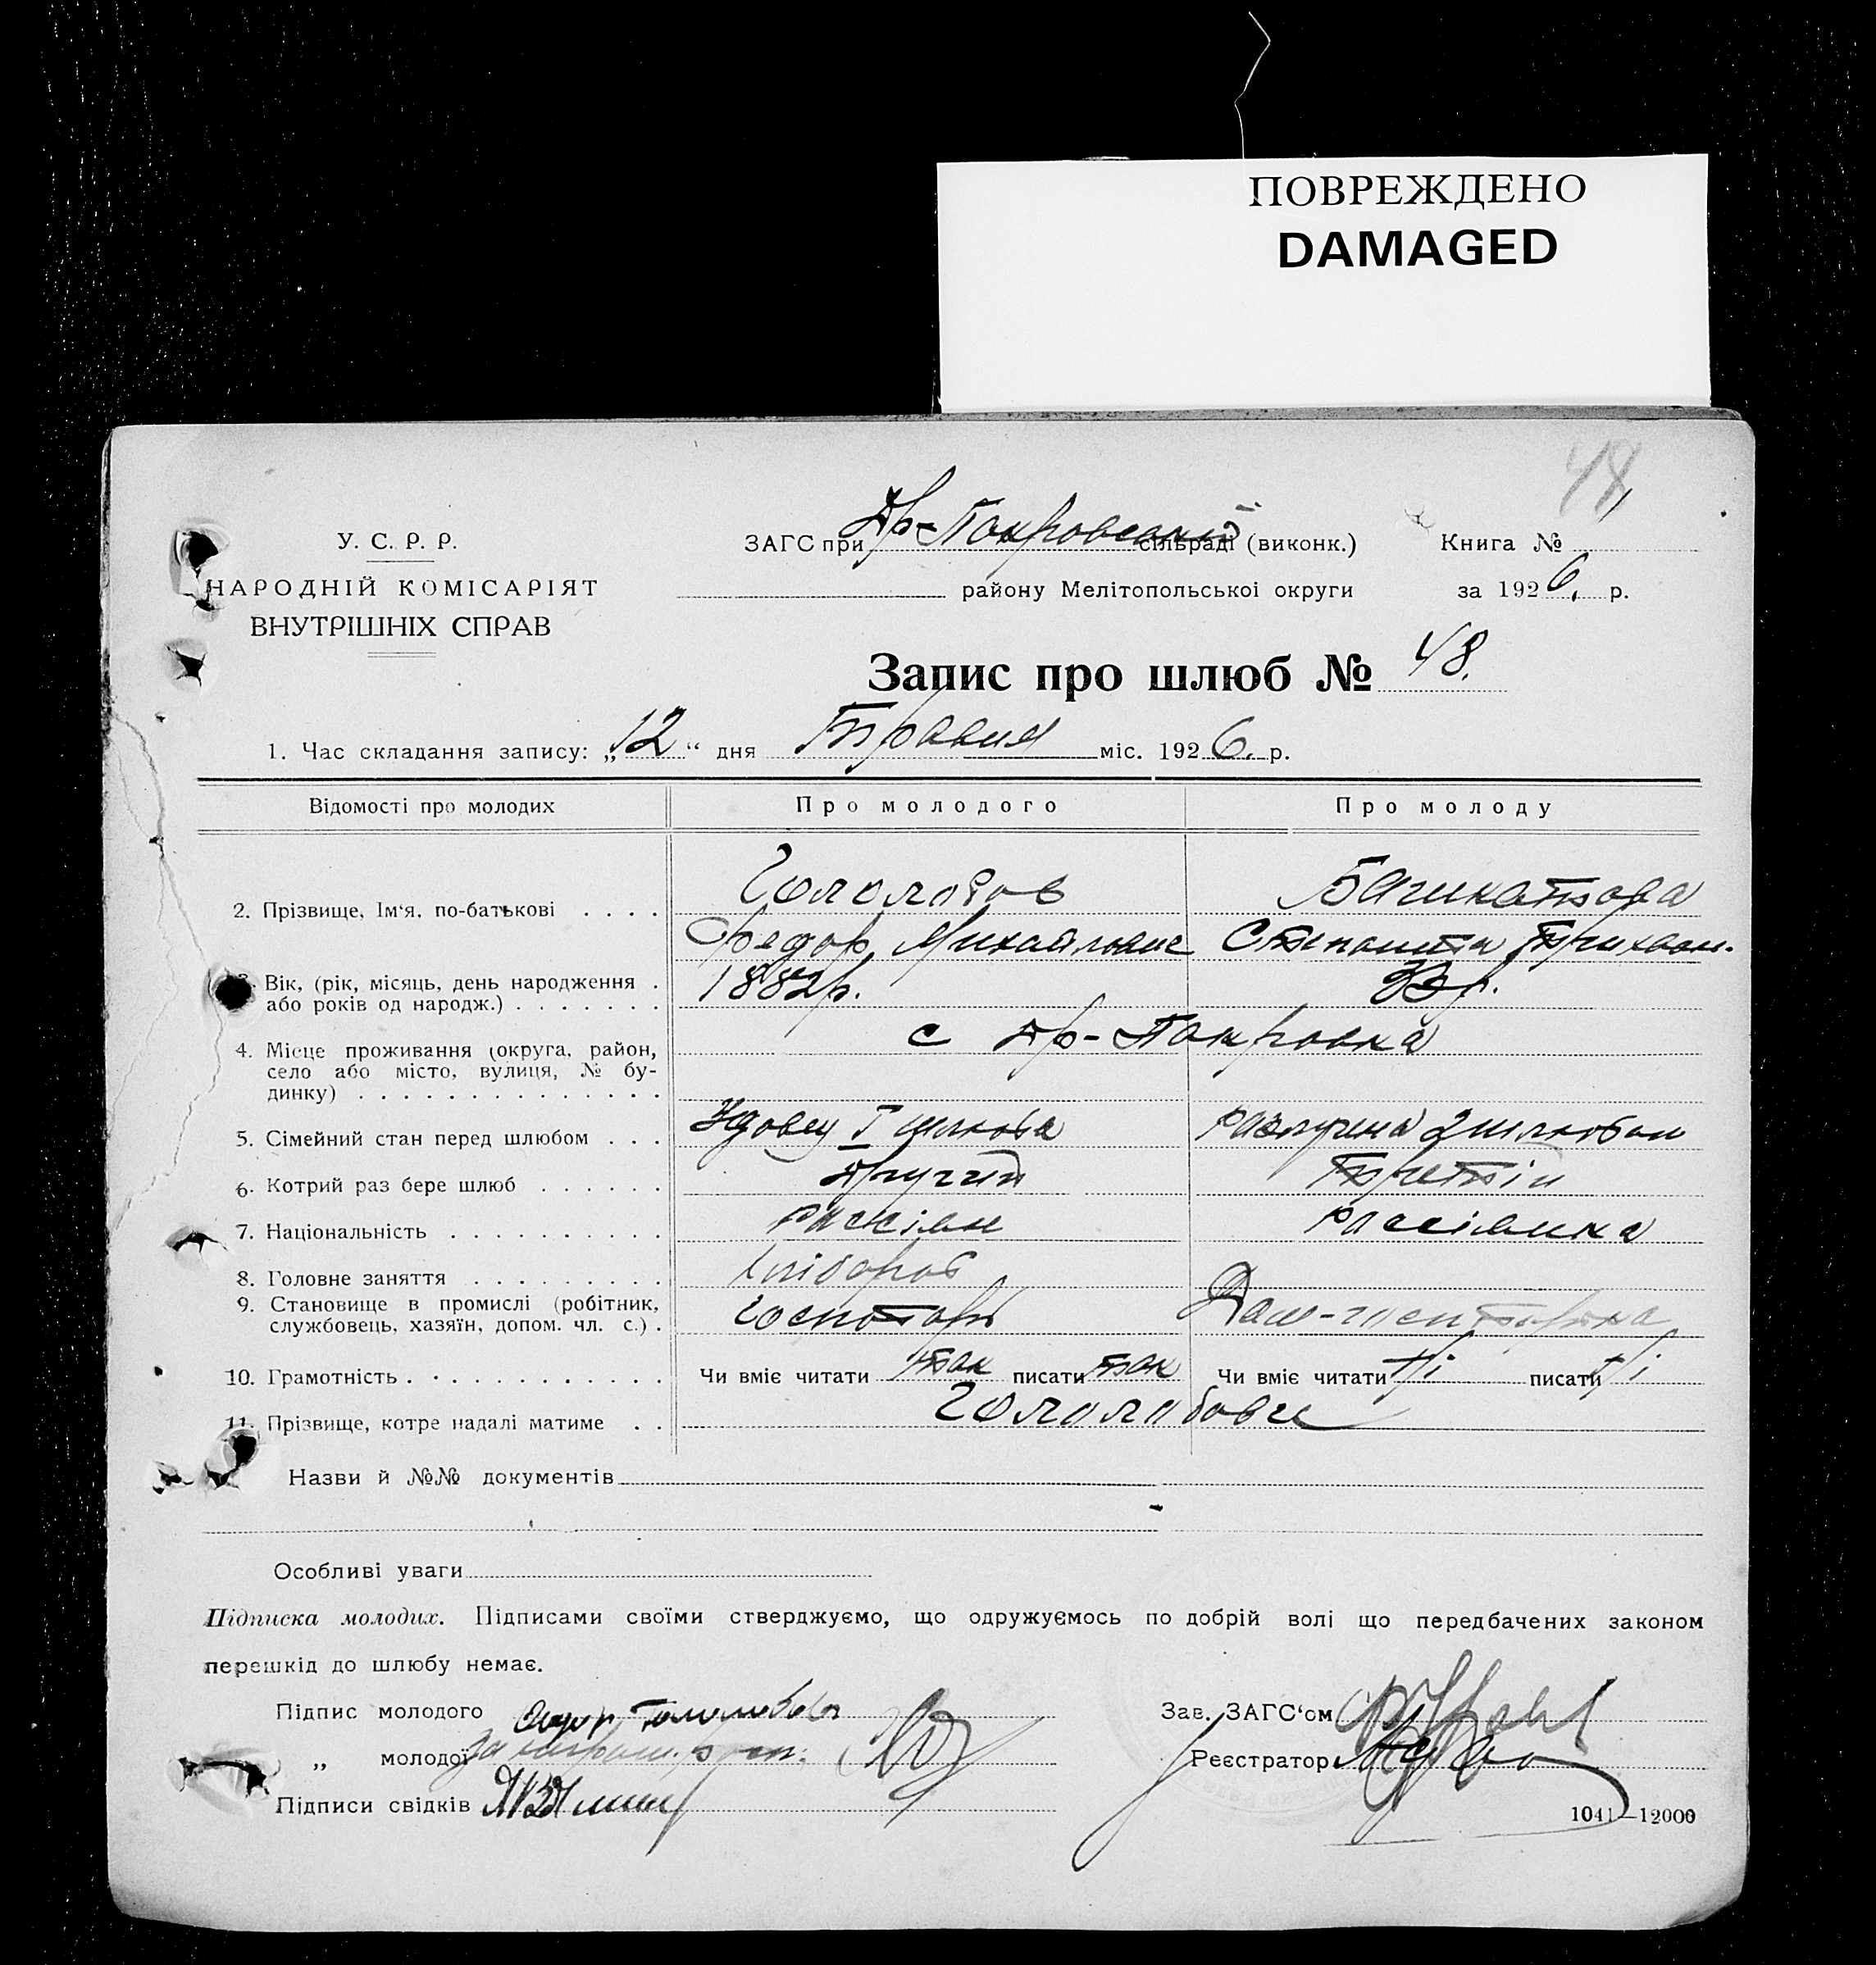 ПОВРЕЖДЕНО
DAMAGED
48
У. С. Р. Р.
НАРОДНІЙ КОМІСАРІЯТ
ВНУТРІШНІХ СПРАВ
ЗАГС при Др-Покровській сільраді (виконк.)
Книга №
району Мелітопольської округи
за 1926. р.
Запис про шлюб № 48.
1. Час складання запису: „12“ дня Травня міс. 1926. р.
Відомості про молодих Про молодого Про молоду
2. Прізвище, Ім'я, по-батькові . . . . Гололобов
Федор Михайлович Степанита
3. Вік, (рік, місяць, день народження . 1882р.
або років од народж.) . . . . . . .
4. Місце проживання (округа, район, с Др-Покровка
село або місто, вулиця, № бу-
динку) . . . . . . . . . . . . . .
5. Сімейний стан перед шлюбом . . . Удовец I шлюба разлучена 2 шлюбом
6. Котрий раз бере шлюб . . . . . . Другий Третій
7. Національність . . . . . . . . . . Россіян Россіянка
8. Головне заняття . . . . . . . . . Хлібороб
9. Становище в промислі (робітник,
службовець, хазяїн, допом. чл. с.) . Господарь Дом-господарка
10. Грамотність . . . . . . . . . . . Чи вміє читати так писати так Чи вміє читати ні писати ні
11. Прізвище, котре надалі матиме . . Гололобови
Назви й №№ документів
Особливі уваги
Підписка молодих. Підписами своїми стверджуємо, що одружуємось по добрій волі що передбачених законом
перешкід до шлюбу немає.
Підпис молодого Гололобов
Зав. ЗАГС'ом
„ молодої за неграм.
Реєстратор
Підписи свідків
1041—12000